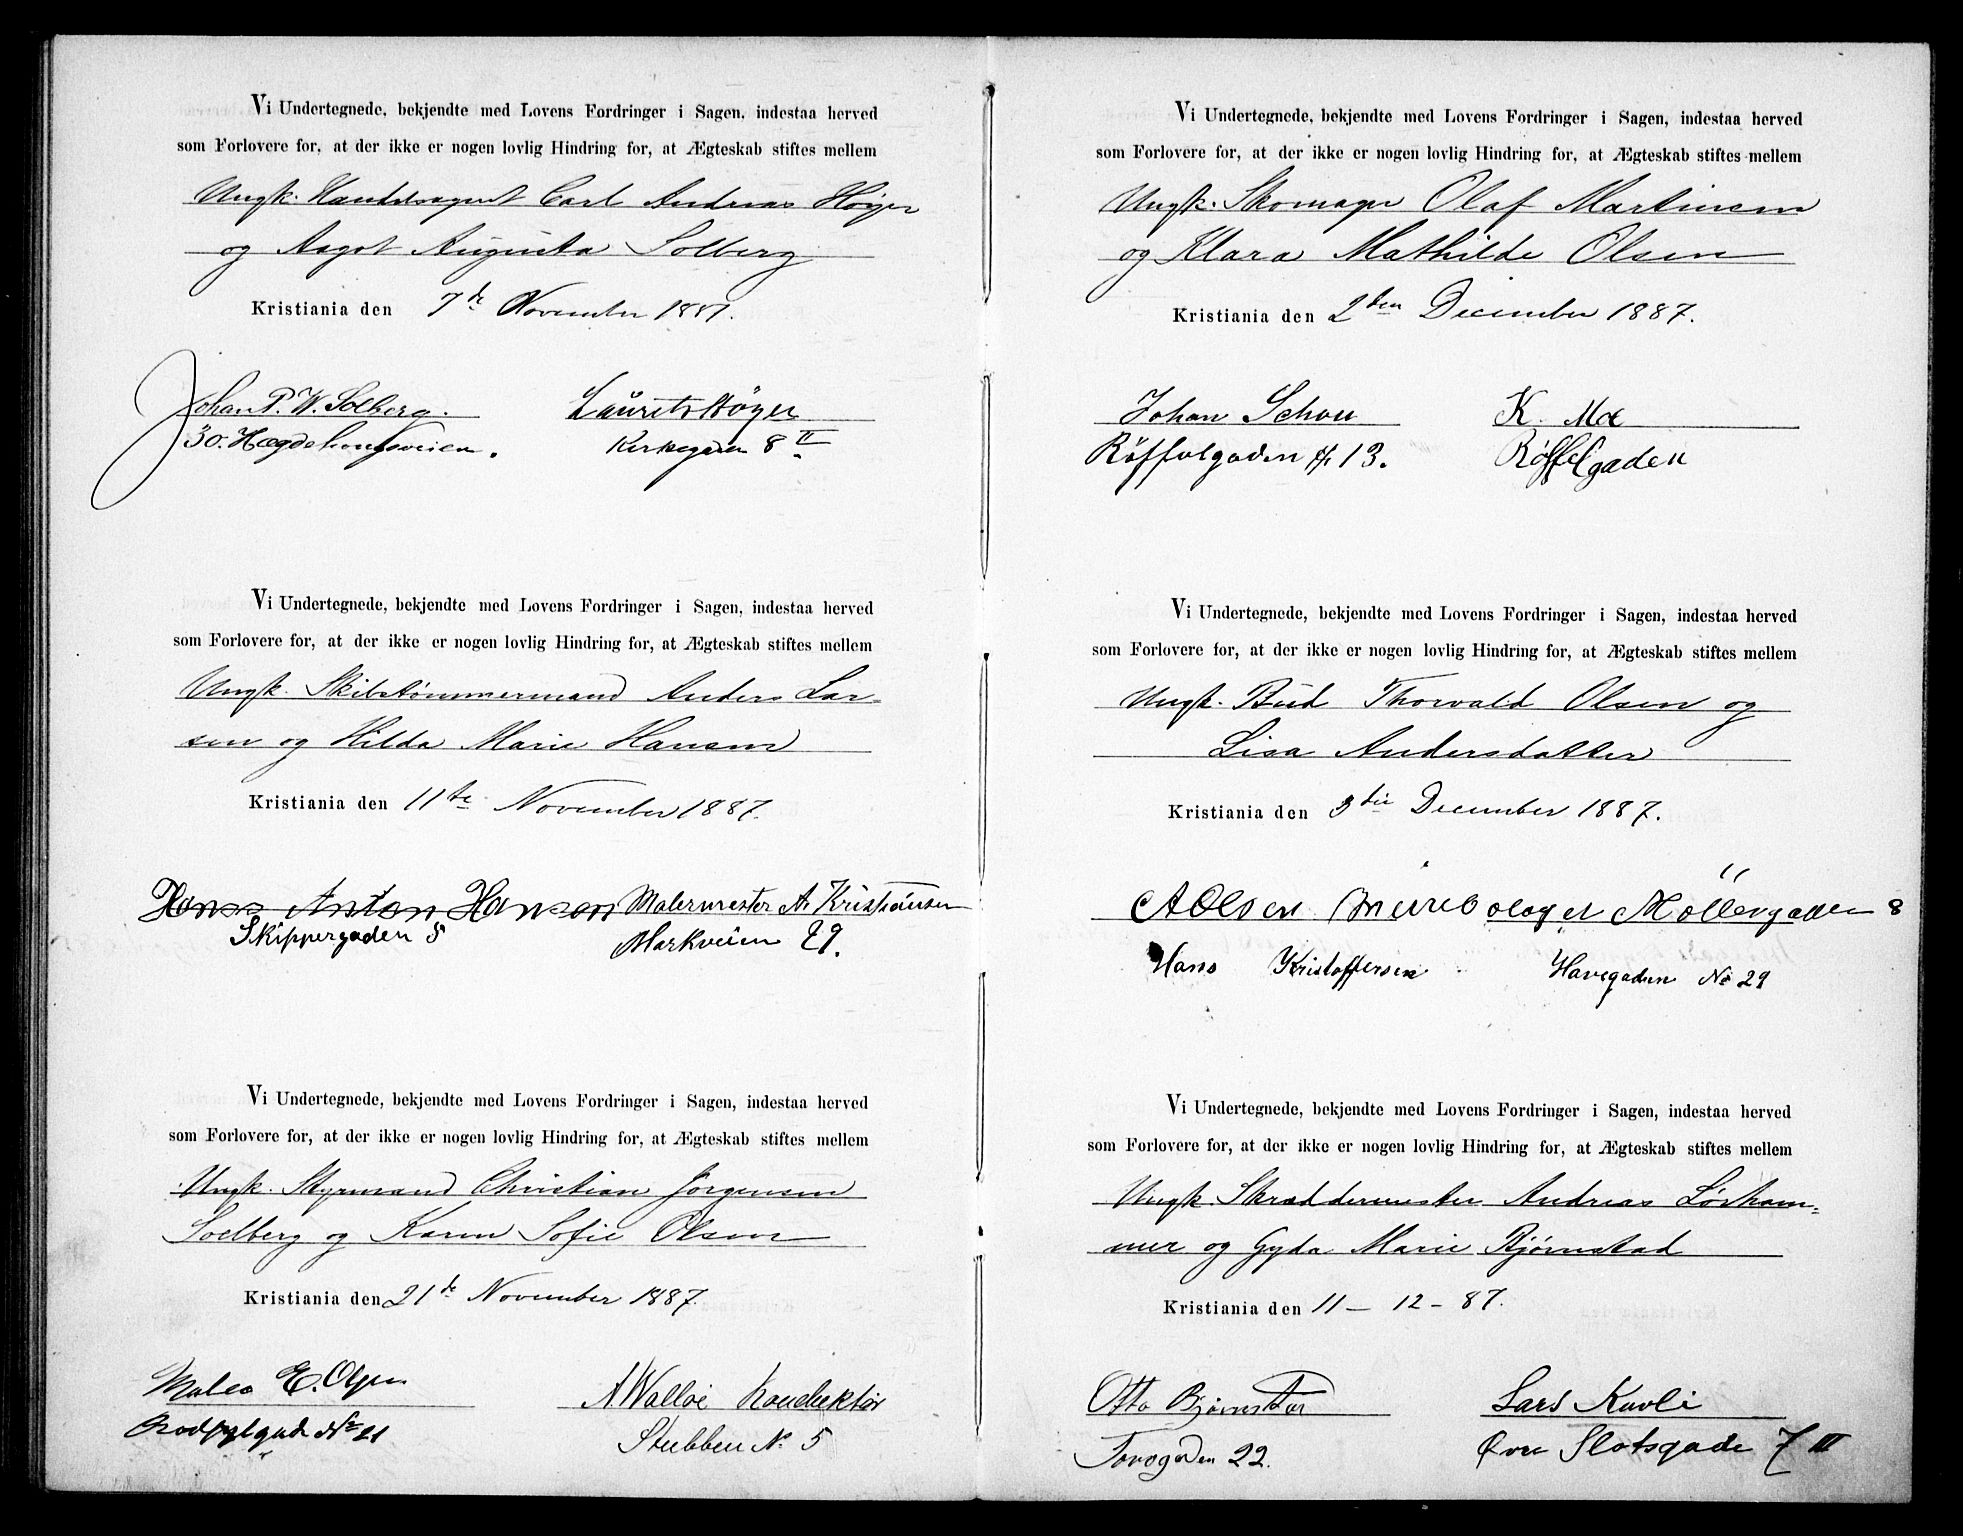 Vi Undertegnede, bekjendte med Lovens Fordringer i Sagen, indestaa herved
som Forlovere for, at der ikke er nogen lovlig Hindring for, at Ægteskab stiftes mellem
Ungk. Handelsagent Carl Andreas Høyer
og Aagot Augusta Solberg
Kristiania den 7de November 1887.
Johan P. W. Solberg. Laurits Höyer
30. Hægdehougsveien. Kirkegaden 8 II
Vi Undertegnede, bekjendte med Lovens Fordringer i Sagen, indestaa herved
som Forlovere for, at der ikke er nogen lovlig Hindring for, at Ægteskab stiftes mellem
Ungk. Skibstømmermand Anders Lar-
sen og Hilda Marie Hansen
Kristiania den 11te November 1887.
Hans Anton Hansen Malermester A. Kristiansen
Skippergaden 5 Markveien 29.
Vi Undertegnede, bekjendte med Lovens Fordringer i Sagen, indestaa herved
som Forlovere for, at der ikke er nogen lovlig Hindring for, at Ægteskab stiftes mellem
Ungk. Styrmand Christian Jørgensen
Soelberg og Karen Sofie Olsen
Kristiania den 21de November 1887.
E. Olsen A Walløe Konduktør
No 21 Stubben No 5
Vi Undertegnede, bekjendte med Lovens Fordringer i Sagen, indestaa herved
som Forlovere for, at der ikke er nogen lovlig Hindring for, at Ægteskab stiftes mellem
Ungk. Skomager Olaf Martinsen
og Klara Mathilde Olsen
Kristiania den 2den December 1887.
Johan Schou K. Moe
Røffelgaden 13. Røffelgaden
Vi Undertegnede, bekjendte med Lovens Fordringer i Sagen, indestaa herved
som Forlovere for, at der ikke er nogen lovlig Hindring for, at Ægteskab stiftes mellem
Ungk. Bud Thorvald Olsen og
Lisa Andersdatter
Kristiania den 3die December 1887.
A Olsen Möllergaden 8
Hans Kristoffersen Havegaden No 29
Vi Undertegnede, bekjendte med Lovens Fordringer i Sagen, indestaa herved
som Forlovere for, at der ikke er nogen lovlig Hindring for, at Ægteskab stiftes mellem
Ungk. Skræddermester Andreas Løvham-
mer og Gyda Marie Bjørnstad
Kristiania den 11 - 12 - 87.
Otto Bjørnstad Lars Kavli
Torvgaden 22. Øvre Slotsgade 7 III